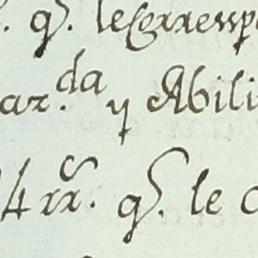 q.s lecorresp
ar.da y Abili
4 rrs. q.s le c